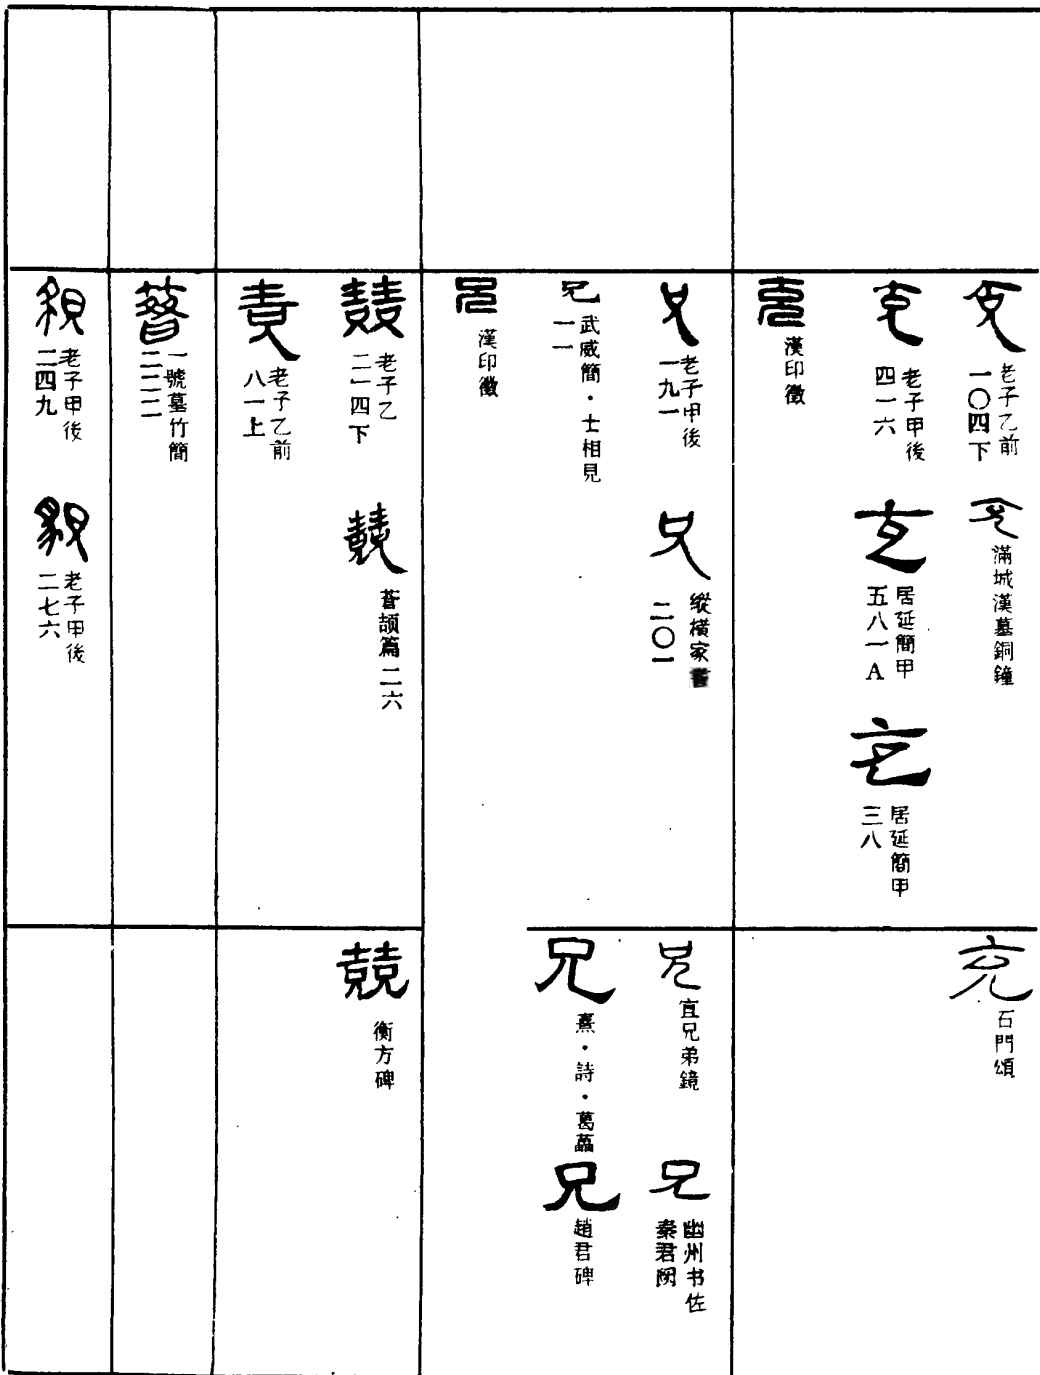 充
老子乙前
一〇四下
充
滿城漢墓銅鐘
充
老子甲後
四一六
充
居延簡甲
五八一A
充
居延簡甲
三八
充
漢印徵
充
石門頌
兄
老子甲後
一九一
兄
縱橫家書
二〇一
兄
武威簡·士相見
一一
兄
漢印徵
兄
宜兄弟鏡
兄
幽州书佐
秦君闕
兄
熹·詩·葛藟
兄
趙君碑
兢
老子乙
二一四下
兢
蒼頡篇二六
兢
衡方碑
老子乙前
八一上
一號墓竹簡
二二二
老子甲後
二四九
老子甲後
二七六